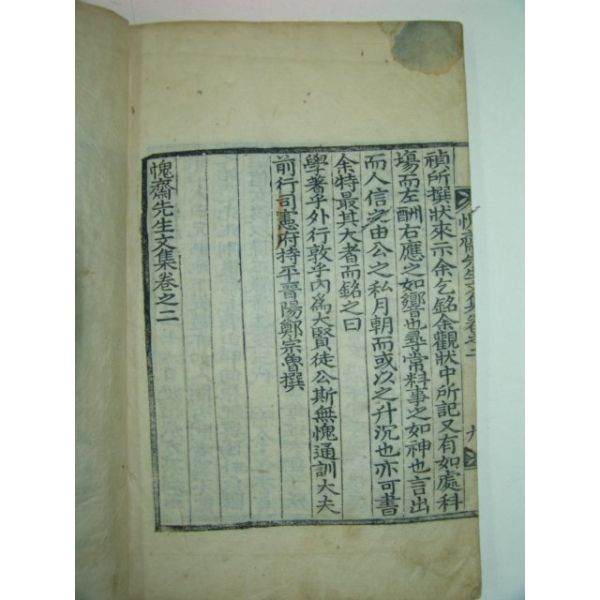 愧齋先生文集卷之二 九
禎所撰狀來示余乞銘余觀狀中所記又有如處科
場而左酬右應之如響也尋常料事之如神也言出
而人信之由公之私月朝而或以之升沉也亦可書
余特最其大者而銘之曰
學著乎外行敦乎內為大賢徒公斯無愧通訓大夫
前行司憲府持平晉陽鄭宗魯撰
愧齋先生文集卷之二